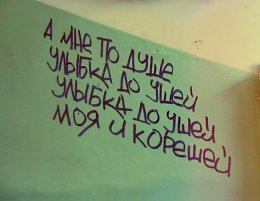 А МНЕ ПО ДУШЕ
УЛЫБКА ДО УШЕЙ
УЛЫБКА ДО УШЕЙ
МОЯ И КОРЕШЕЙ